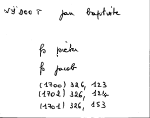 jan baptiste
pieter
jacob
(1700) 326, 123
(1702) 326, 124
(1701) 326, 153